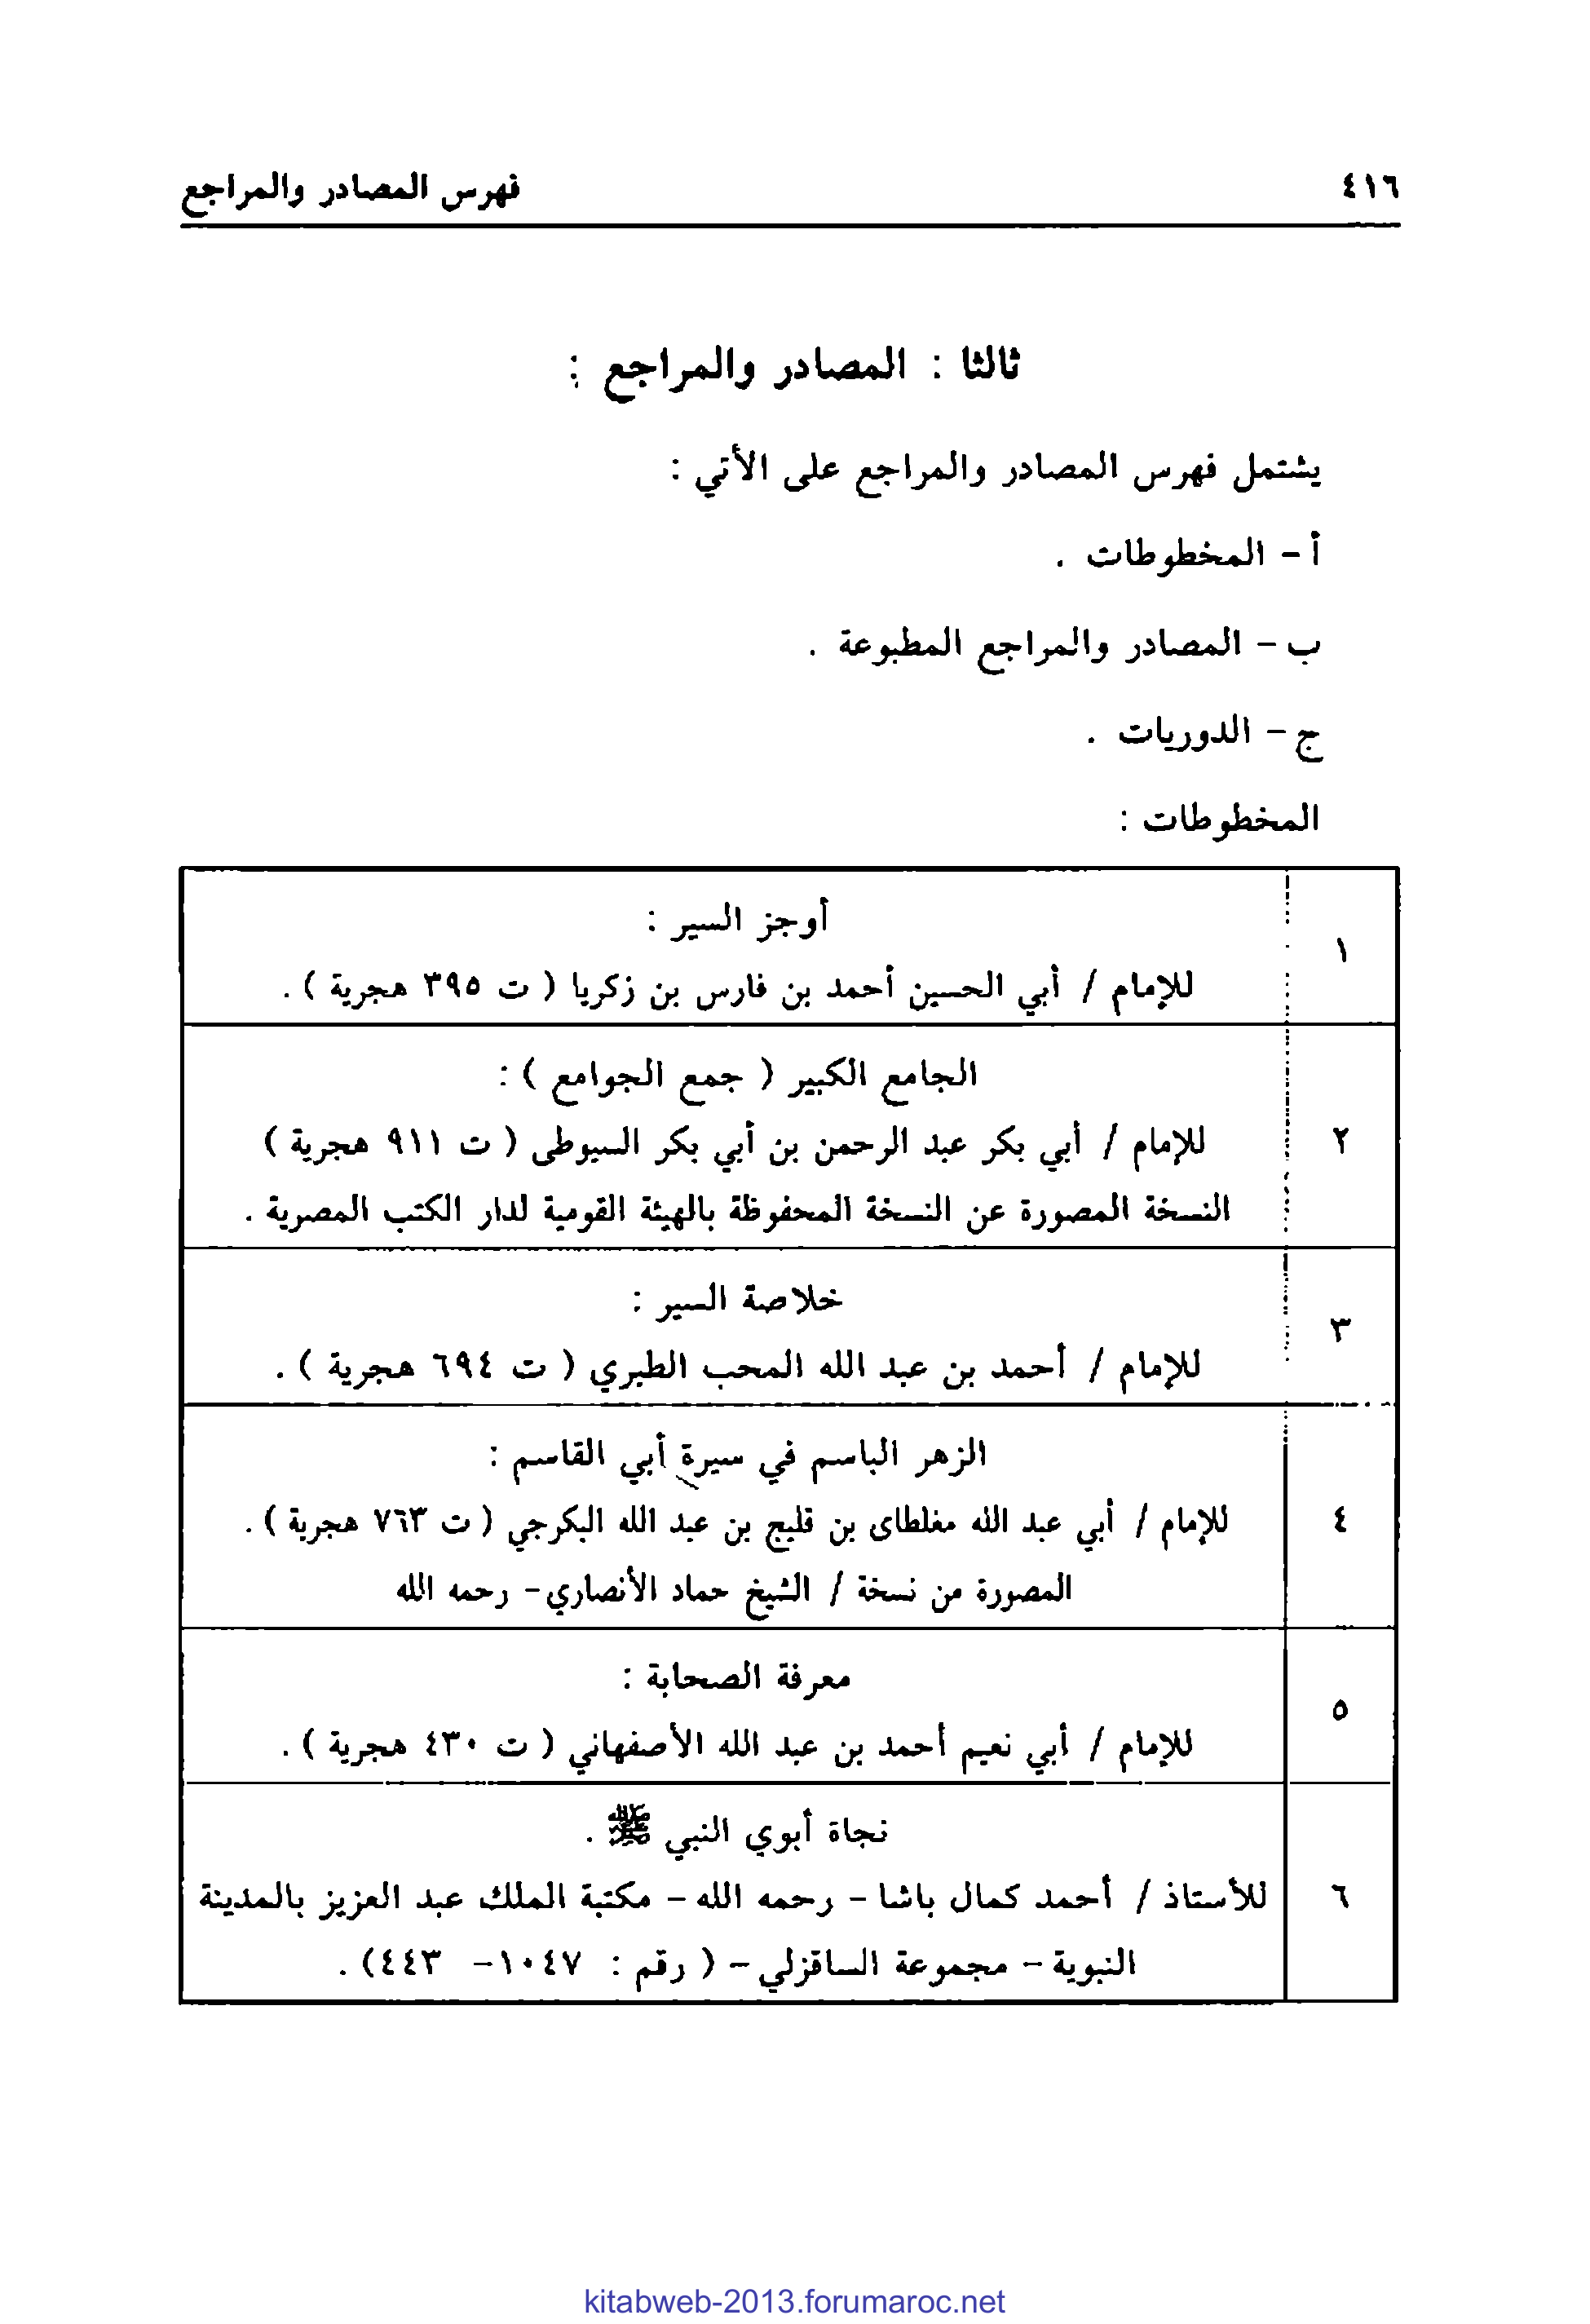 ٤١٦ فهرس المصادر والمراجع
ثالثا : المصادر والمراجع :
يشتمل فهرس المصادر والمراجع على الأتي :
أ - المخطوطات .
ب - المصادر والمراجع المطبوعة .
ج - الدوريات .
المخطوطات :
١
أوجز السير :
للإمام / أبي الحسين أحمد بن فارس بن زكريا ( ت ٣٩٥ هجرية ) .
٢
الجامع الكبير ( جمع الجوامع ) :
للإمام / أبي بكر عبد الرحمن بن أبي بكر السيوطى ( ت ٩١١ هجرية )
النسخة المصورة عن النسخة المحفوظة بالهيئة القومية لدار الكتب المصرية .
٣
خلاصة السير :
للإمام / أحمد بن عبد الله المحب الطبري ( ت ٦٩٤ هجرية ) .
٤
الزهر الباسم في سيرة أبي القاسم :
للإمام / أبي عبد الله مغلطاى بن قليج بن عبد الله البكرجي ( ت ٧٦٣ هجرية ) .
المصورة من نسخة / الشيخ حماد الأنصاري - رحمه الله
٥
معرفة الصحابة :
للإمام / أبي نعيم أحمد بن عبد الله الأصفهاني ( ت ٤٣٠ هجرية ) .
٦
نجاة أبوي النبي ﷺ .
للأستاذ / أحمد كمال باشا - رحمه الله - مكتبة الملك عبد العزيز بالمدينة
النبوية - مجموعة الساقزلي - ( رقم : ١٠٤٧ - ٤٤٣) .
kitabweb-2013.forumaroc.net